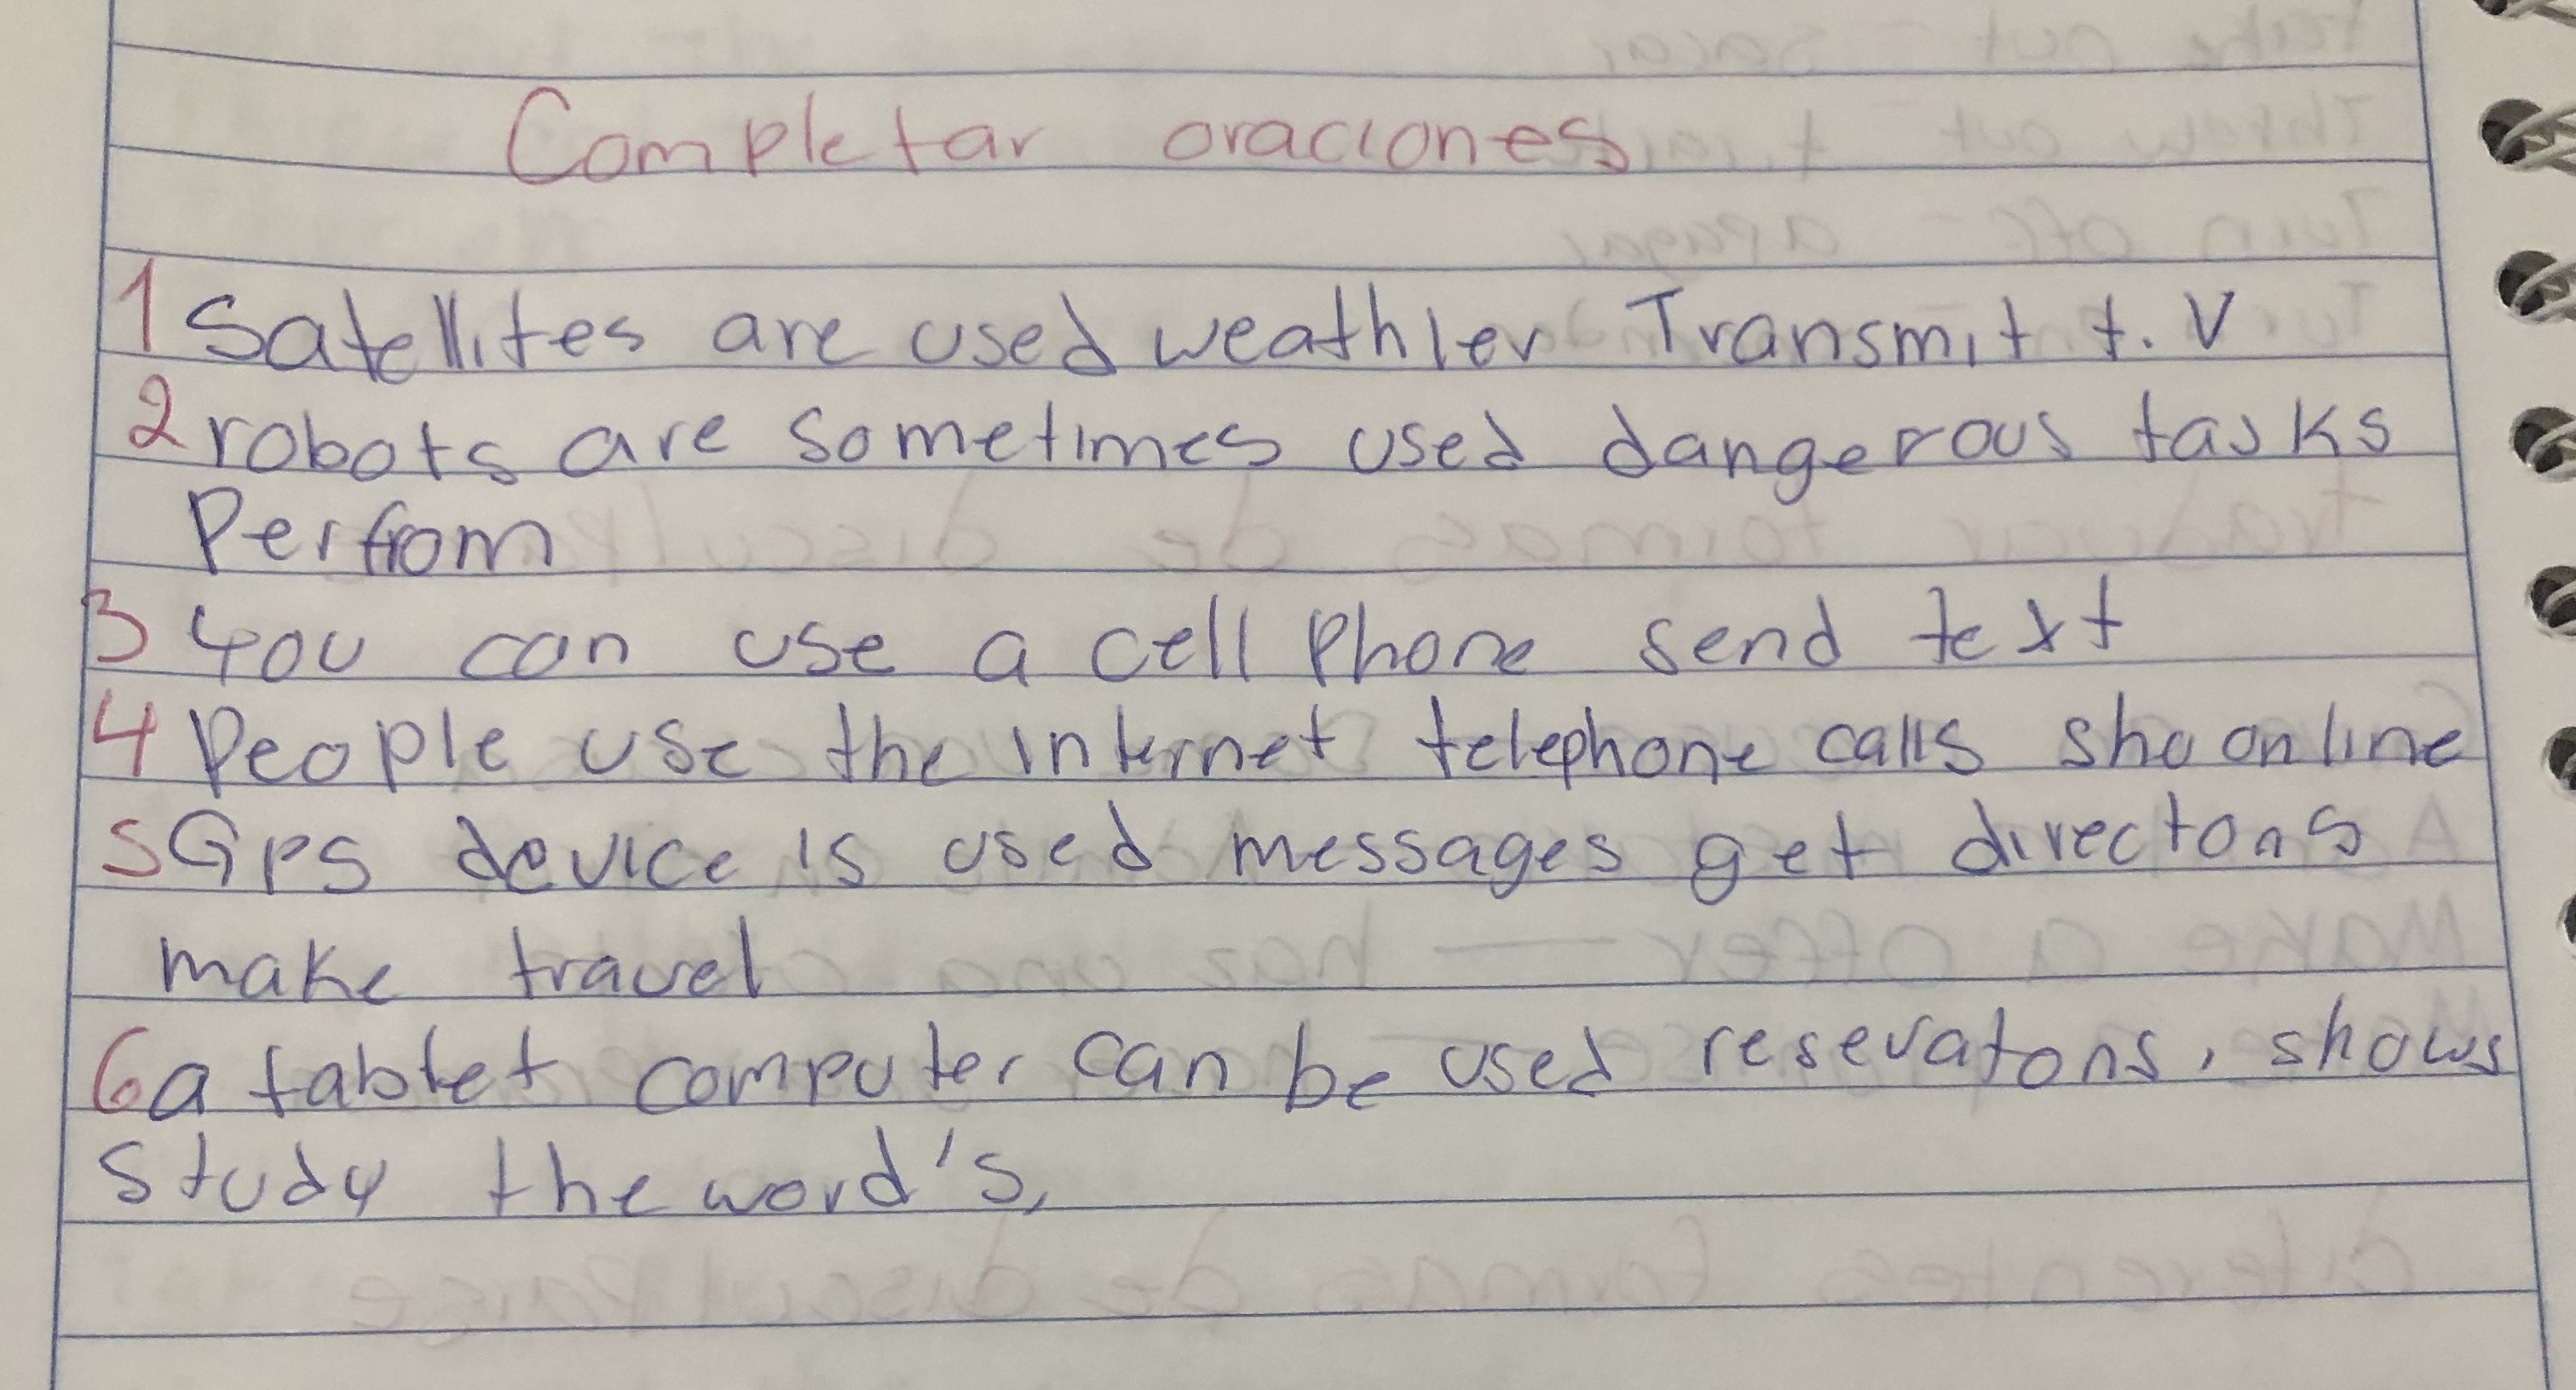 Completar oraciones
1 Satellites are used weathler Transmit t.V
2 robots are sometimes used dangerous tasks
Perfrom
3 you can use a cell Phone send text
4 People use the internet telephone calls sho online
5 GPS device is used messages get directons
make travel
6 a tablet computer can be used resevatons, shows
study the word's,